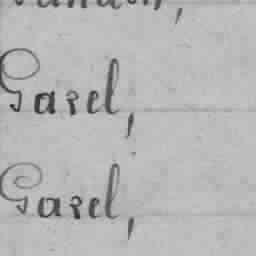 Gasel,
Gasel,